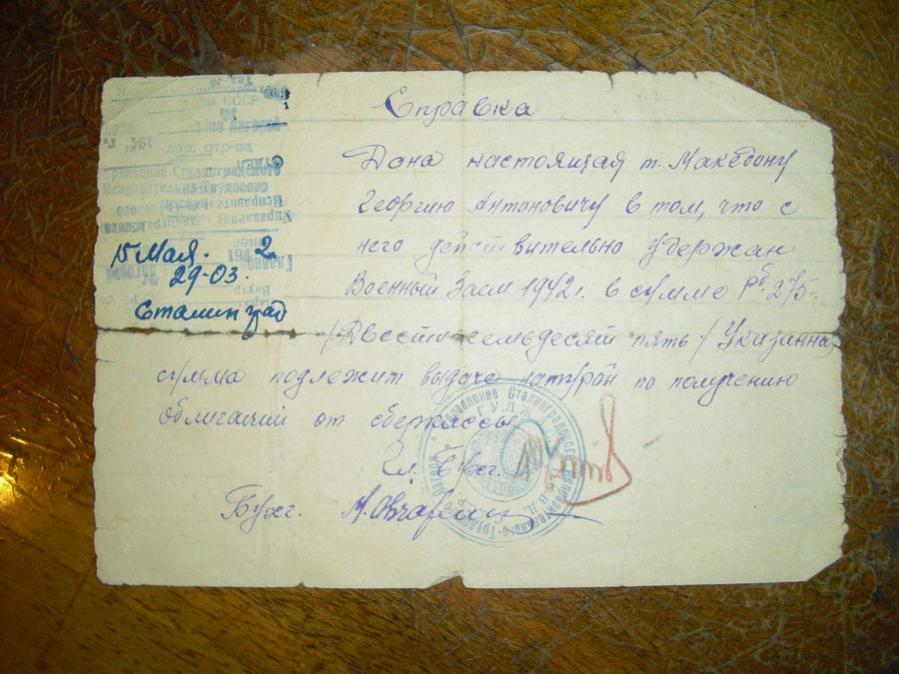 Справка
Дана настоящая т. Македину
Георгию Антоновичу в том, что с
него действительно удержан
Военный Заем 1942г. в сумме Рб 275-
/Двести семьдесят пять/ Указанна
сумма подлежит выдаче натурой по получению
облигаций от сберкассы.
Гл. Бухг.
Бухг.
СССР
отр-ва
Управление Сталинградского
Исправительно-Трудового
15 Мая 2
29-03.
Сталинград
Управление Сталинградского Исправительно-Трудового
ГУЛЖ